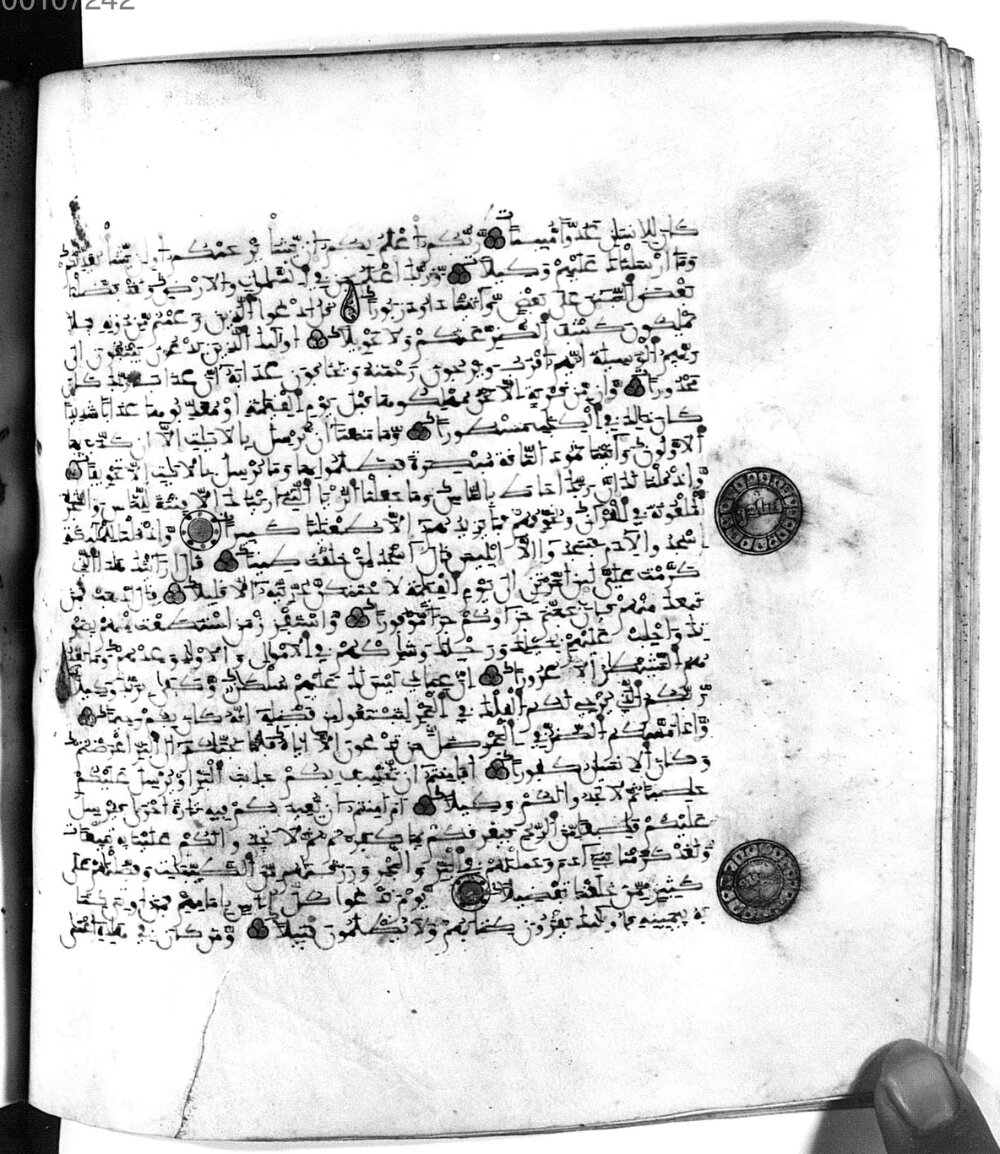 00107242
كان للانسان عدوا مبينا ربكم اعلم بكم ان يشا يرحمكم او ان يشا يعذبكم
وما ارسلناك عليهم وكيلا وربك اعلم بمن في السموات والارض ولقد فضلنا
بعض النبيين على بعض وءاتينا داود زبورا قل ادعوا الذين زعمتم من دونه فلا
يملكون كشف الضر عنكم ولا تحويلا اولئك الذين يدعون يبتغون الى
ربهم الوسيلة ايهم اقرب ويرجون رحمته ويخافون عذابه ان عذاب ربك كان
محذورا وان من قرية الا نحن مهلكوها قبل يوم القيمة او معذبوها عذابا شديدا
كان ذلك في الكتب مسطورا وما منعنا ان نرسل بالايت الا ان كذب بها
الاولون وءاتينا ثمود الناقة مبصرة فظلموا بها وما نرسل بالايت الا تخويفا
واذ قلنا لك ان ربك احاط بالناس وما جعلنا الريا التي ارينك الا فتنة للناس والشجرة
الملعونة في القرءان ونخوفهم فما يزيدهم الا طغينا كبيرا واذ قلنا للملئكة
اسجدوا لادم فسجدوا الا ابليس قال ءاسجد لمن خلقت طينا قال ارايتك هذا الذي
كرمت علي لئن اخرتن الى يوم القيمة لاحتنكن ذريته الا قليلا قال اذهب فمن
تبعك منهم فان جهنم جزاوكم جزاء موفورا واستفزز من استطعت منهم بصو
تك واجلب عليهم بخيلك ورجلك وشاركهم في الامول والاولد وعدهم وما يعد
هم الشيطن الا غرورا ان عبادي ليس لك عليهم سلطن وكفى بربك وكيلا
ربكم الذي يزجي لكم الفلك في البحر لتبتغوا من فضله انه كان بكم رحيما
واذا مسكم الضر في البحر ضل من تدعون الا اياه فلما نجيكم الى البر اعرضتم
وكان الانسن كفورا افامنتم ان يخسف بكم جانب البر او يرسل عليكم
حاصبا ثم لا تجدوا لكم وكيلا ام امنتم ان يعيدكم فيه تارة اخرى فيرسل
عليكم قاصفا من الريح فيغرقكم بما كفرتم ثم لا تجدوا لكم علينا به تبيعا
ولقد كرمنا بني ءادم وحملنهم في البر والبحر ورزقنهم من الطيبت وفضلنهم على
كثير ممن خلقنا تفضيلا يوم ندعوا كل اناس بامامهم فمن اوتي كتا
به بيمينه فاولئك يقرءون كتابهم ولا يظلمون فتيلا ومن كان في هذه اعمى